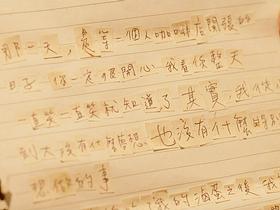 那一天，是第一個人咖啡店開張的
日子，你一定很開心，我看你整天
一直笑一直笑就知道了。其實，我從小
到大沒有什麼夢想，也沒有什麼特別
想做的事
我的滷蛋之後，我